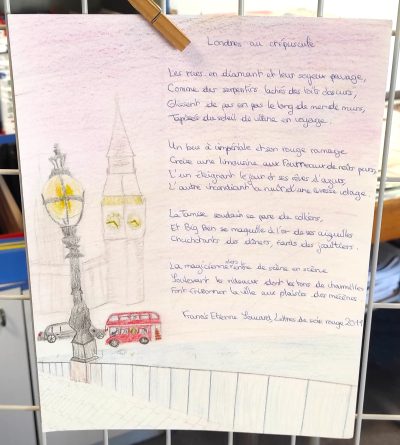 Londres au crépuscule
Les rues en diamant et leur soyeux pavage,
Comme des serpentins lachés des toits obscurs,
Glissent de pas en pas le long de mers de murs,
Tapissés du soleil de ultime en voyage.
Un bus à impériale et son rouge ramage
Croise une limousine aux fourneaux de noirs purs,
L'un éteignant le jour et ses rêves d'azurs,
L'autre chandiant la nuit d'une ivresse volage.
La Tamise soudain se pare de colliers,
Et Big Ben se maquille à l'or de ses aiguilles
Chuchotants des dîners, fards des joailliers.
La magicienne alors entre de scène en scène
Soulevant les rideaux dont les tons de charmilles
Font frissonner la ville aux plaisirs des mécènes
Francis Etienne Lettres de soie rouge 2011